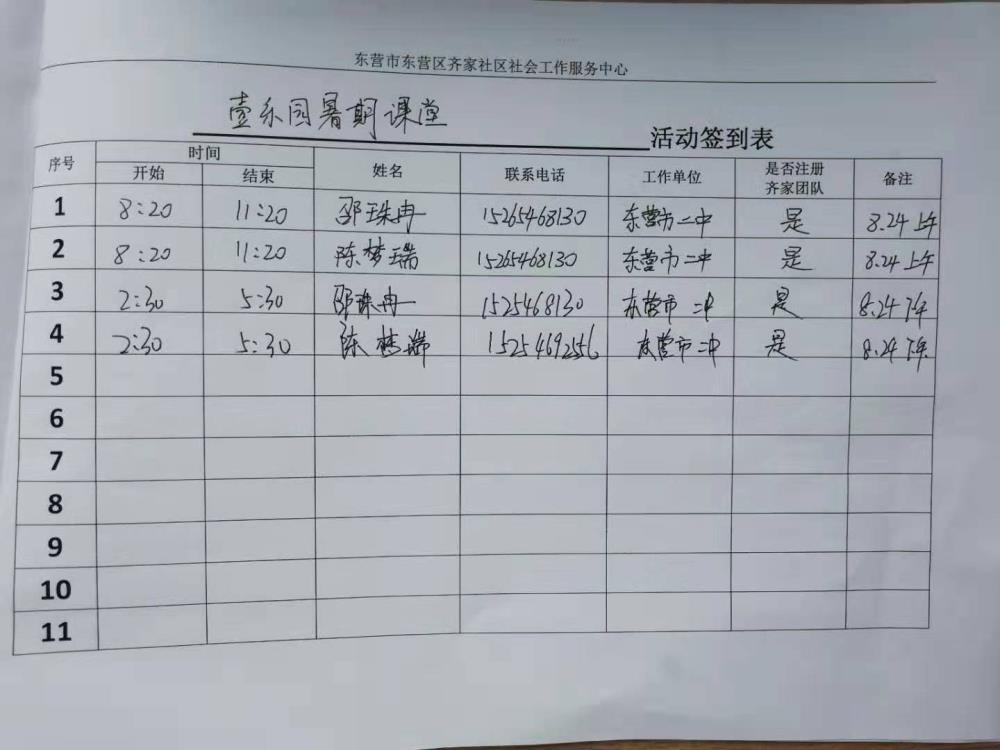 东营市东营区齐家社区社会工作服务中心
壹乐园暑期课堂 活动签到表
序号 时间 姓名 联系电话 工作单位 是否注册齐家团队 备注
开始 结束
1 8:20 11:20 邵珠冉 15265468130 东营市二中 是 8.24上午
2 8:20 11:20 陈梦瑞 15265468130 东营市二中 是 8.24上午
3 2:30 5:30 邵珠冉 1525468130 东营市二中 是 8.24下午
4 2:30 5:30 陈梦瑞 15254692556 东营市二中 是 8.24下午
5
6
7
8
9
10
11